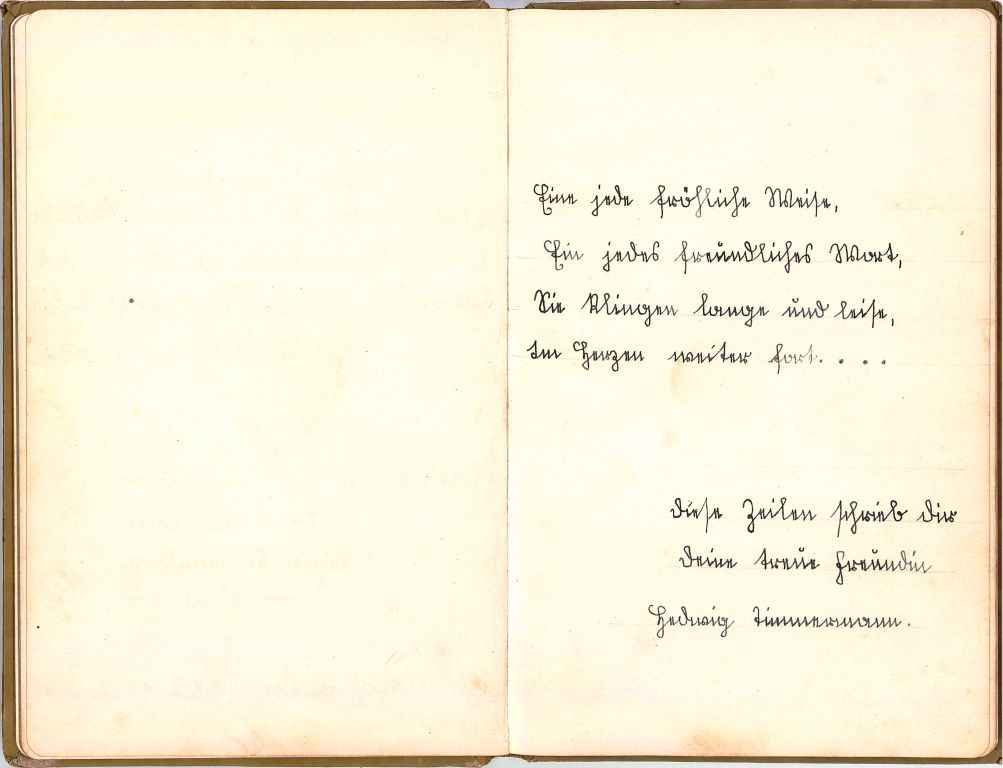 Eine jede fröhliche Weise,
Ein jedes freundliches Wort,
Sie klingen lange und leise,
Im Herzen weiter fort. . . .
Diese Zeilen schrieb Dir
Deine treue Freundin
Hedwig Timmermann.